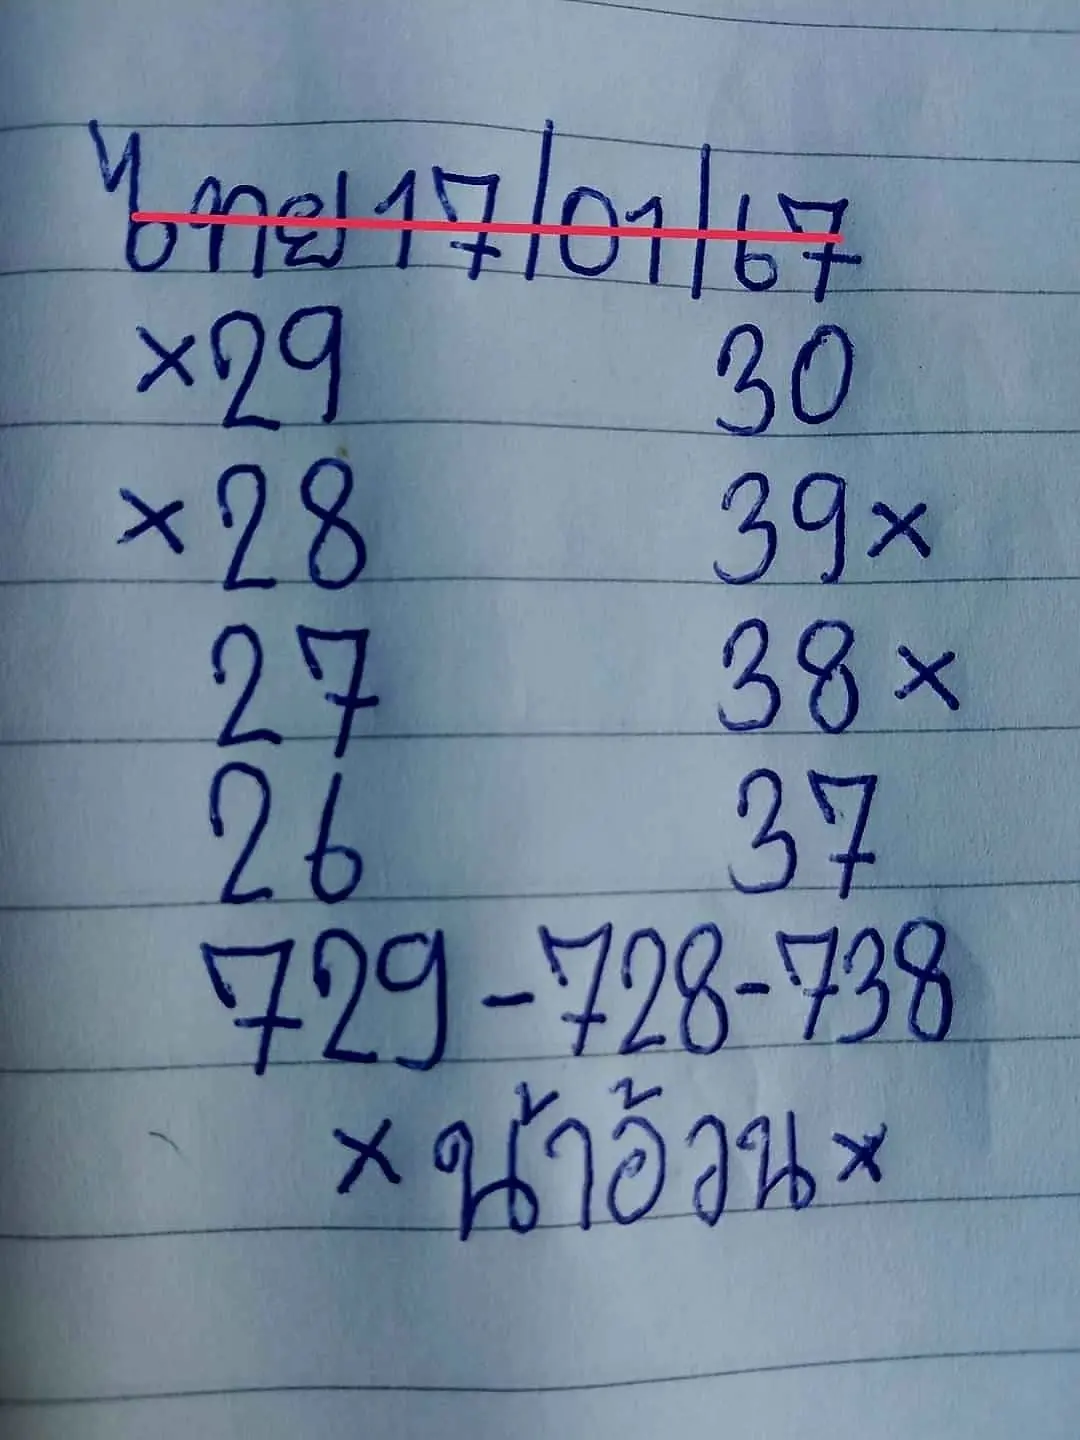 ไทย 17/01/67
×29 30
×28 39×
27 38×
26 37
729-728-738
×น้าอ้วน×